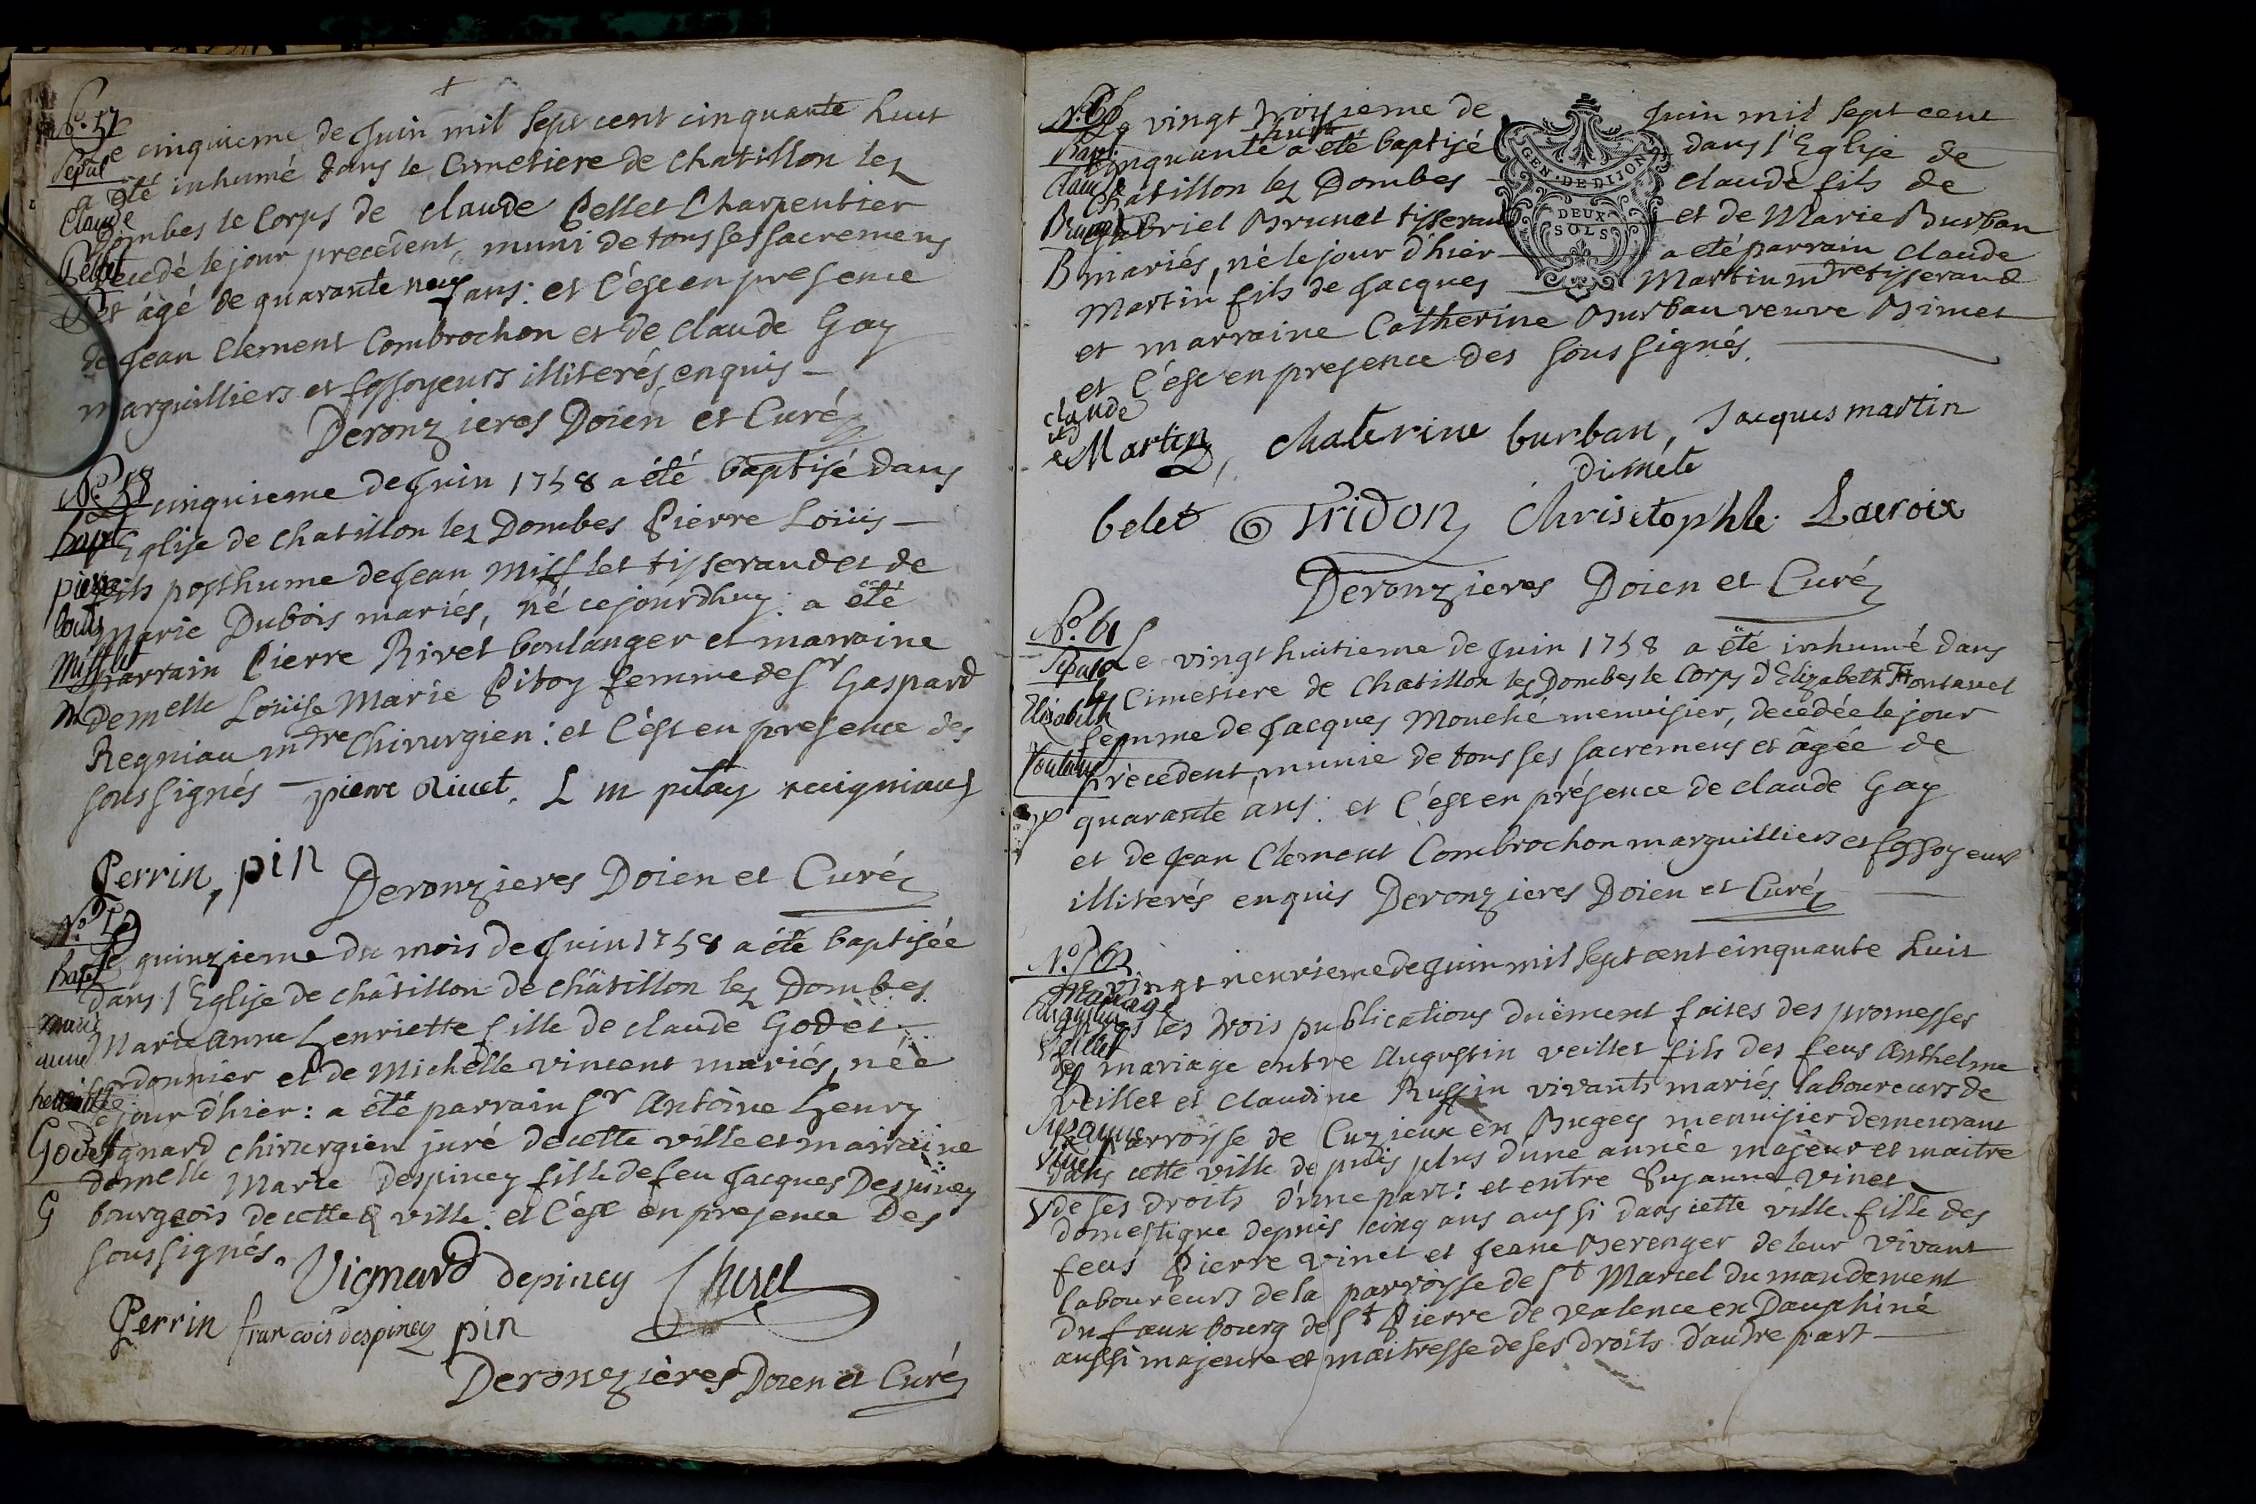 No. 57
Le cinquieme de Juin mil sept cent cinquante huit
Sepul
a été inhumé dans le Cimetiere de Chatillon lez
Claude
Dombes le Corps de Claude Pellet Charpentier
Pellet
decedé le jour precedent, muni de tous ses sacremens
P et âgé de quarante neuf ans: et c'est en presence
de Jean Clement Combrochon et de Claude Gay
marguilliers et fossoyeurs illiterés enquis —
Deronzieres Doien et Curé
No. 58
Le cinquieme de Juin 1758 a été baptisé dans
Bapt
l'Eglise de Chatillon lez Dombes Pierre Loüis —
pierre
fils posthume de Jean Mifflet tisserand et de
louis
Marie Dubois mariés, né cejourdhuy: a été
Mifflet
parrain Pierre Rivet boulanger et marraine
M Demelle Loüise Marie Pitoy femme de Sr Gaspard
Regniau mdre Chirurgien: et c'est en presence des
soussignés — pierre Rivet. L m pitoy reigniaud
Perrin, pin Deronzieres Doien et Curé
No. 59
Le quinzieme du mois de Juin 1758 a été baptisée
Bapt
dans l'Eglise de châtillon de châtillon lez Dombes
marie
anne
Marie Anne henriette fille de Claude Godet —
Cordonnier et de Michelle vincent mariés, née
henriette
le jour d'hier: a été parrain Sr Antoine henry
Godet
Vignard chirurgien juré de cette ville et marraine
demelle Marie Despiney fille de feu Jacques Despiney
G bourgeois de cette ville: et c'est en presence des
soussignés.
Vignard depiney Chevel
Perrin francois despiney pin
Deronzières Doien et Curé
No. 60
Le vingt troisieme de Juin mil sept cent
huit
Bapt
cinquante a été baptisé dans l'Eglise de
Claude
Chatillon lez Dombes — Claude fils de
Brunet
Gabriel Brunet tisserand — et de Marie Burban
B mariés, né le jour d'hier — a été parrain Claude
Martin fils de Jacques — Martin mdre tisserand
GEN. DE DIJON
DEUX
SOLS
et marraine Catherine Burban veuve Dimet
et c'est en presence des soussignés.
claude
Martin, chaterine burban, Jacques martin
diméte
belet Tridon Christophle Lacroix
Deronzieres Doien et Curé
No. 61
Sepul
Le vingt huitieme de Juin 1758 a été inhumé dans
le Cimetiere de Chatillon lez Dombes le Corps d'Elizabeth Fontanel
Elizabeth
femme de Jacques Mouché menuisier, decedée le jour
Fontanel
precedent, munie de tous ses sacremens et âgée de
quarante ans: et c'est en présence de Claude Gay
et de Jean Clement Combrochon marguilliers et fossoyeurs
illiterés enquis Deronzieres Doien et Curé
No. 62
Le vingt neuvieme de Juin mil sept cent cinquante huit
Mariage
Augustin
apres les trois publications düement faites des promesses
Veillet
de mariage entre Augustin veillet fils des feus Anthelme
Veillet et Claudine Ruffin vivants mariés laboureurs de
la parroisse de Cuzieux en Bugey menuisier demeurant
Susanne
Vinet
dans cette ville depuis plus d'une année majeur et maitre
V de ses droits d'une part: et entre Susanne Vinet
domestique depuis cinq ans aussi dans cette ville fille des
feus Pierre Vinet et Jeane Berenger de leur vivant
laboureurs de la parroisse de St Marcel du mandement
du faux bourg de St Pierre de valence en Dauphiné
aussi majeure et maitresse de ses droits d'autre part —